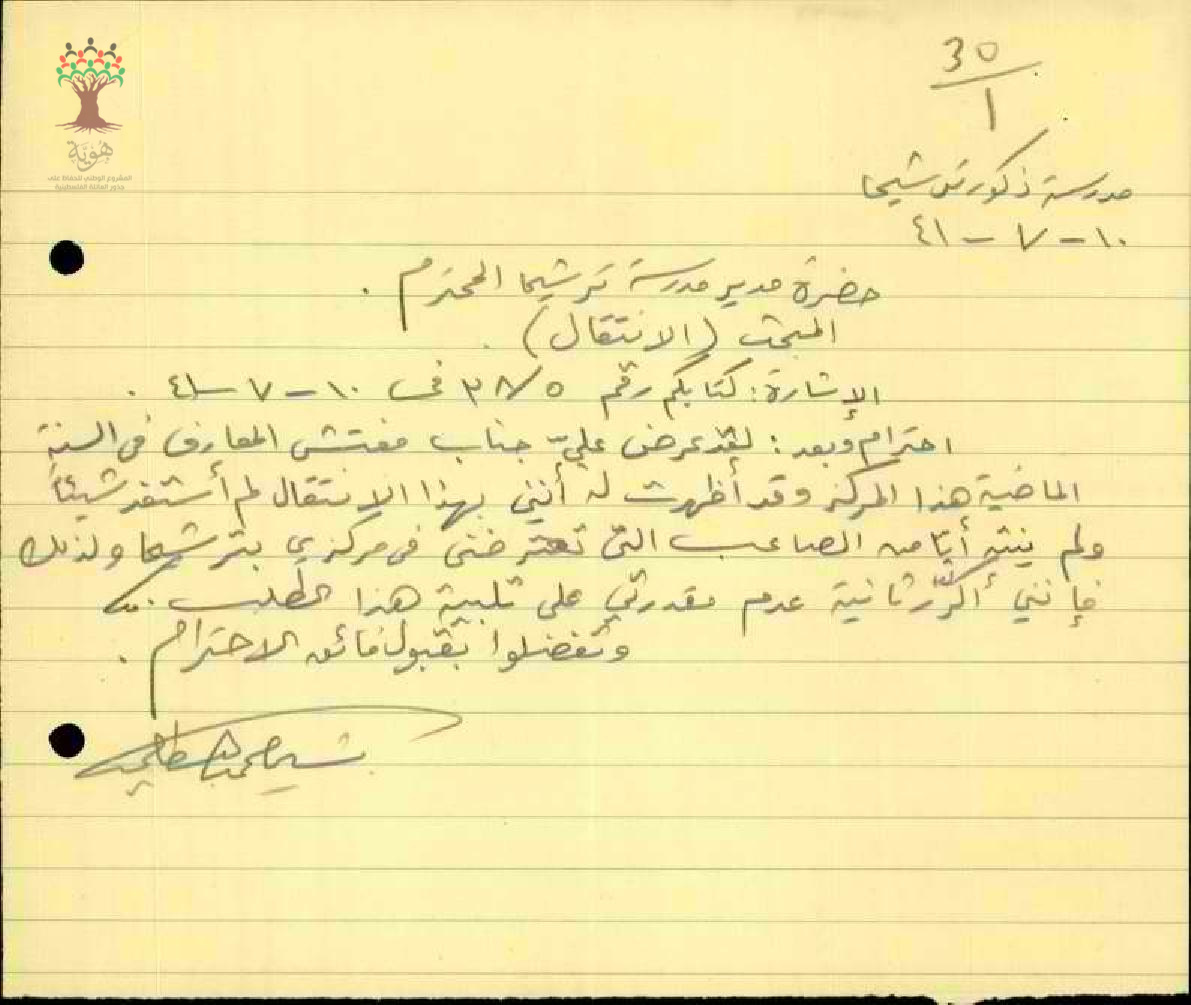 30
1
هُويَّة
المشروع الوطني للحفاظ على
جذور العائلة الفلسطينية
مدرسة ذكور ترشيحا
١٠ – ٧ – ٤١
حضرة مدير مدرسة ترشيحا المحترم .
المبحث (الانتقال) .
الإشارة : كتابكم رقم ٣٨/٥ في ١٠ – ٧ – ٤١ .
احترام وبعد : لقد عرض عليّ جناب مفتش المعارف في السنة
الماضية هذا المركز وقد أظهرت له أنني بهذا الانتقال لم أستفد شيئاً
ولم ينته أيّا من المصاعب التي تعترضني في مركزي بترشيحا ولذلك
فإنني أكرّر ثانية عدم مقدرتي على تلبية هذا الطلب .
وتفضلوا بقبول فائق الاحترام .